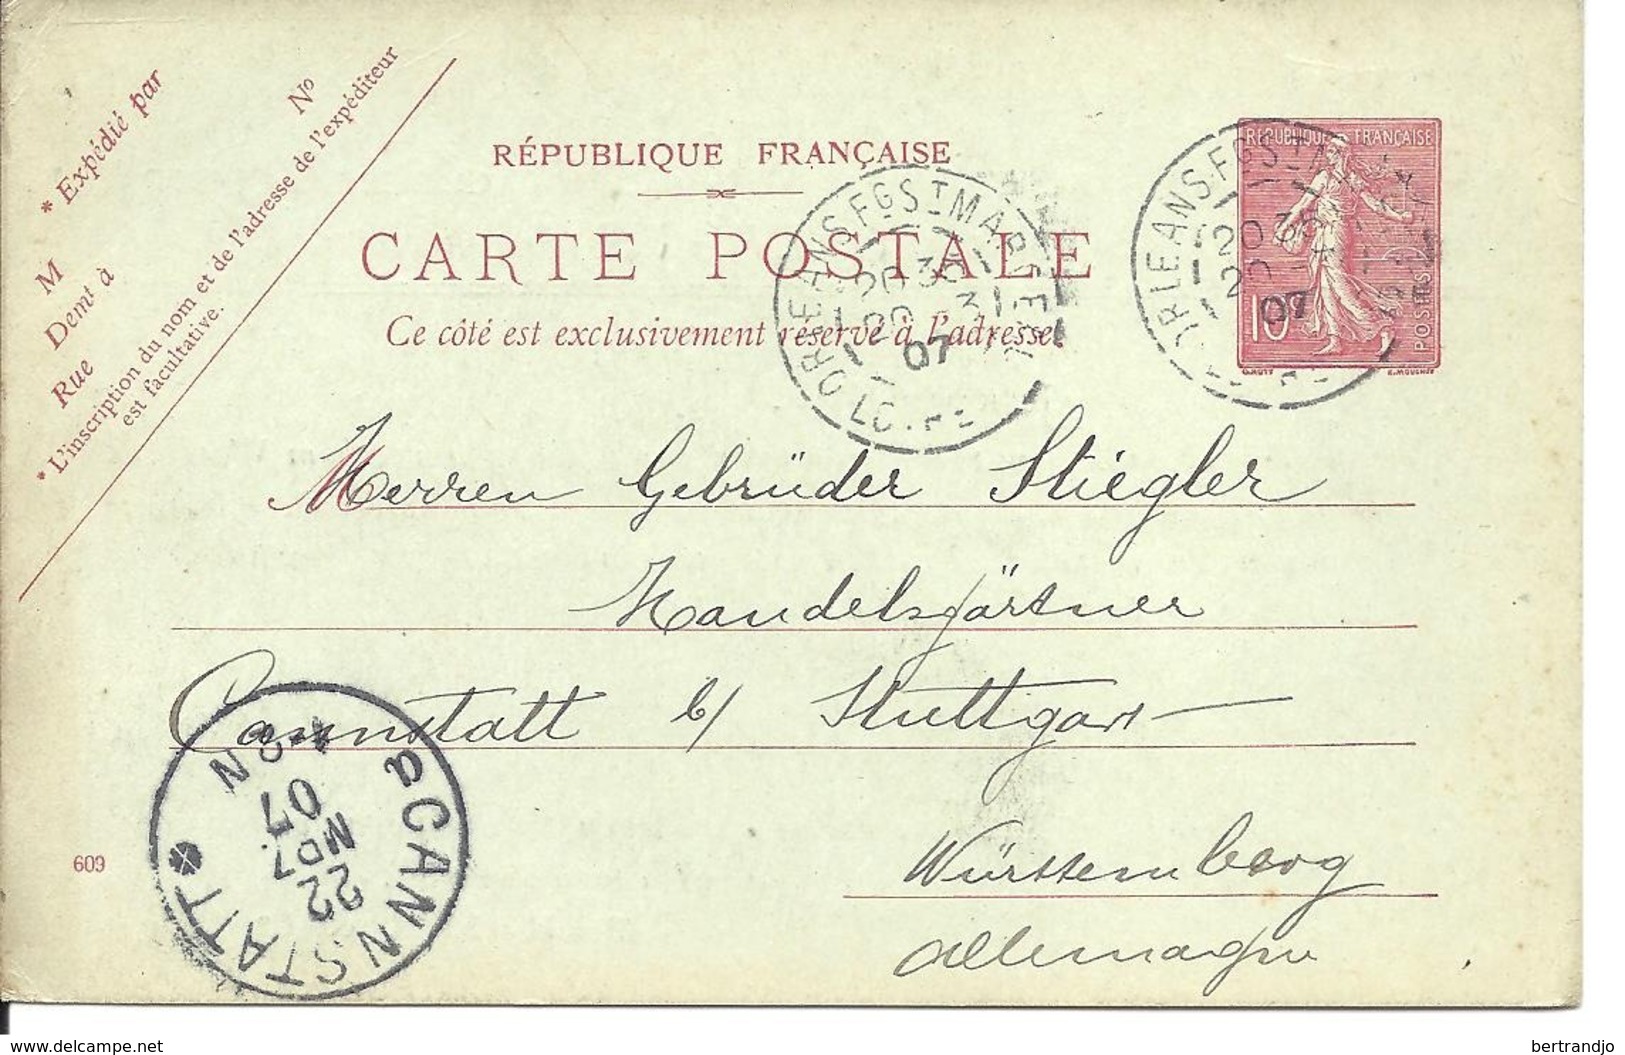 * Expédié par
M N°
Demt à
Rue
* L'inscription du nom et de l'adresse de l'expéditeur
est facultative.
RÉPUBLIQUE FRANÇAISE
CARTE POSTALE
Ce côté est exclusivement réservé à l'adresse.
ORLEANS.FG ST MARCEAU
20 30
20 3
07
LOIRET
RÉPUBLIQUE FRANÇAISE
10
POSTES
O.ROTY E.MOUCHON
ORLEANS.FG ST M
20 3
20
07
Herren Gebrüder Stiegler
Handelsgärtner
Cannstatt b/ Stuttgart
Württemberg
Allemagne
a CANNSTATT
22
MRZ
07
N
609
www.delcampe.net
bertrandjo